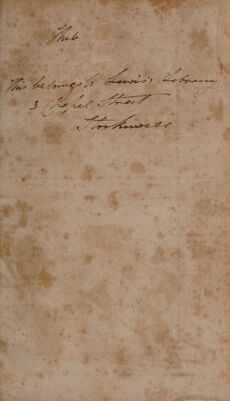 This
This belongs to Lewis's Library
3 Chapel Street
Stockwell